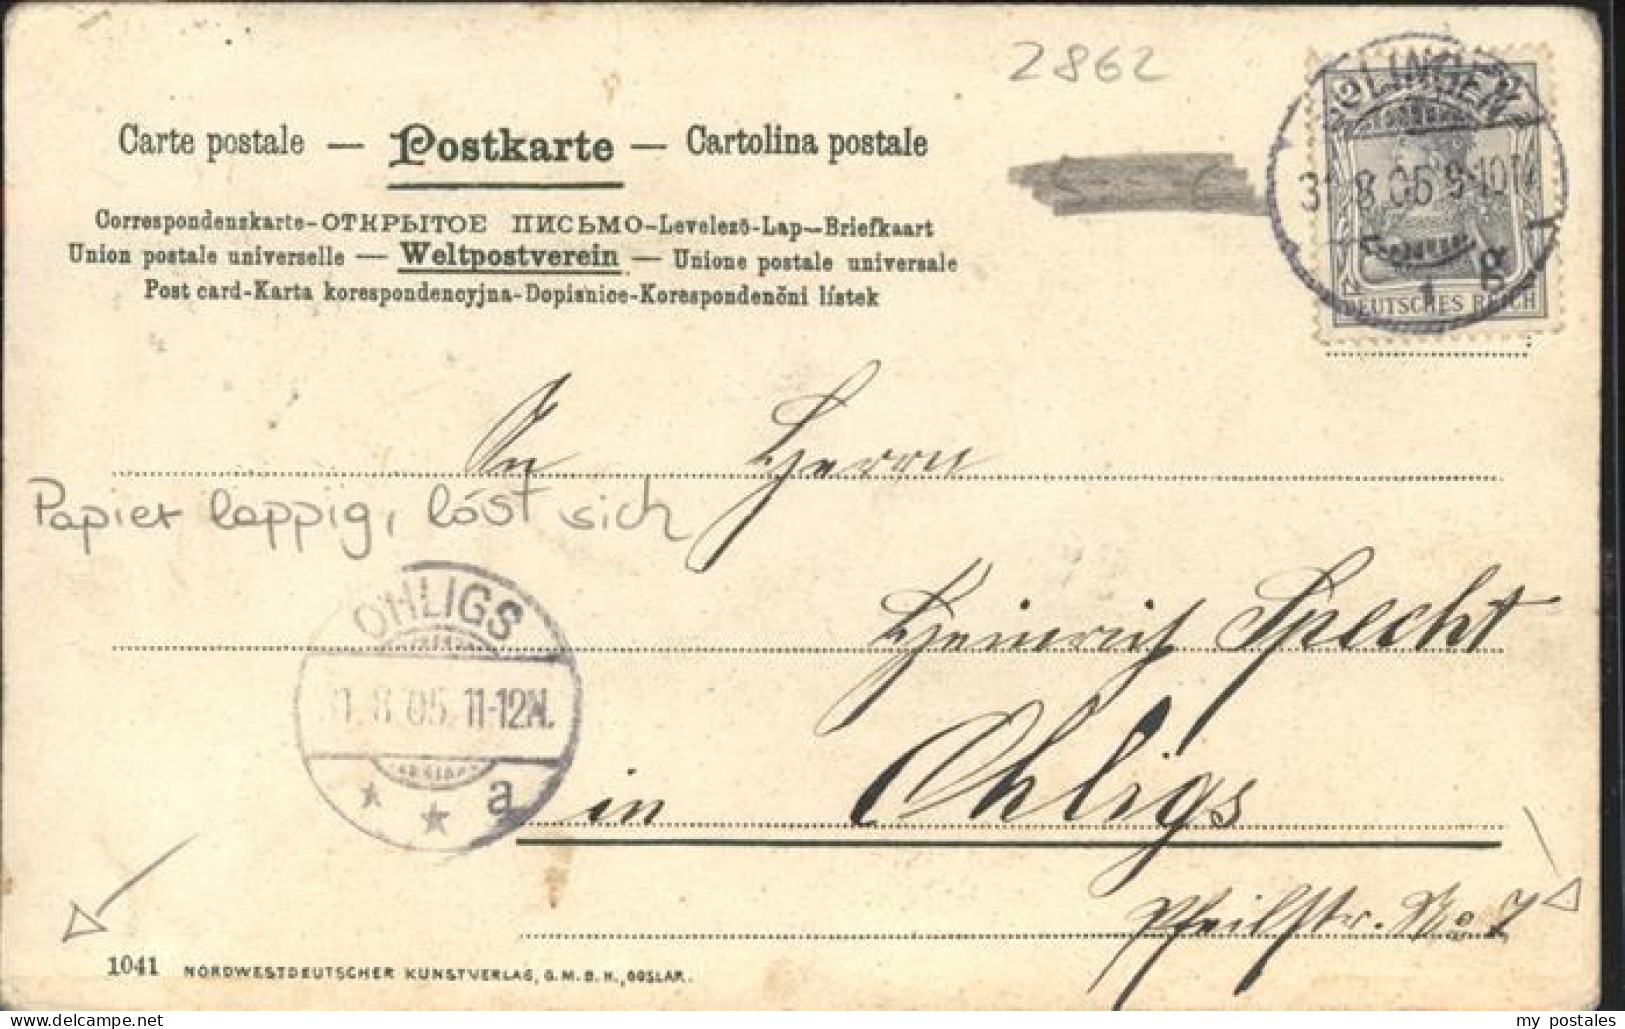 2862
SOLINGEN
31.8.05 9-10N
1 g
DEUTSCHES REICH
Carte postale — Postkarte — Cartolina postale
Correspondenzkarte-ОТКРЫТОЕ ПИСЬМО-Levelező-Lap-Briefkaart
Union postale universelle — Weltpostverein — Unione postale universale
Post card-Karta korespondencyjna-Dopisnice-Korespondenčni listek
An Herrn
Papier lappig, löst sich
Heinrich Specht
OHLIGS
31.8.05. 11-12N.
* * a
in Ohligs
Pfeilstr. No 7
1041 NORDWESTDEUTSCHER KUNSTVERLAG, G.M.B.H., GOSLAR.
delcampe.net
my_postales